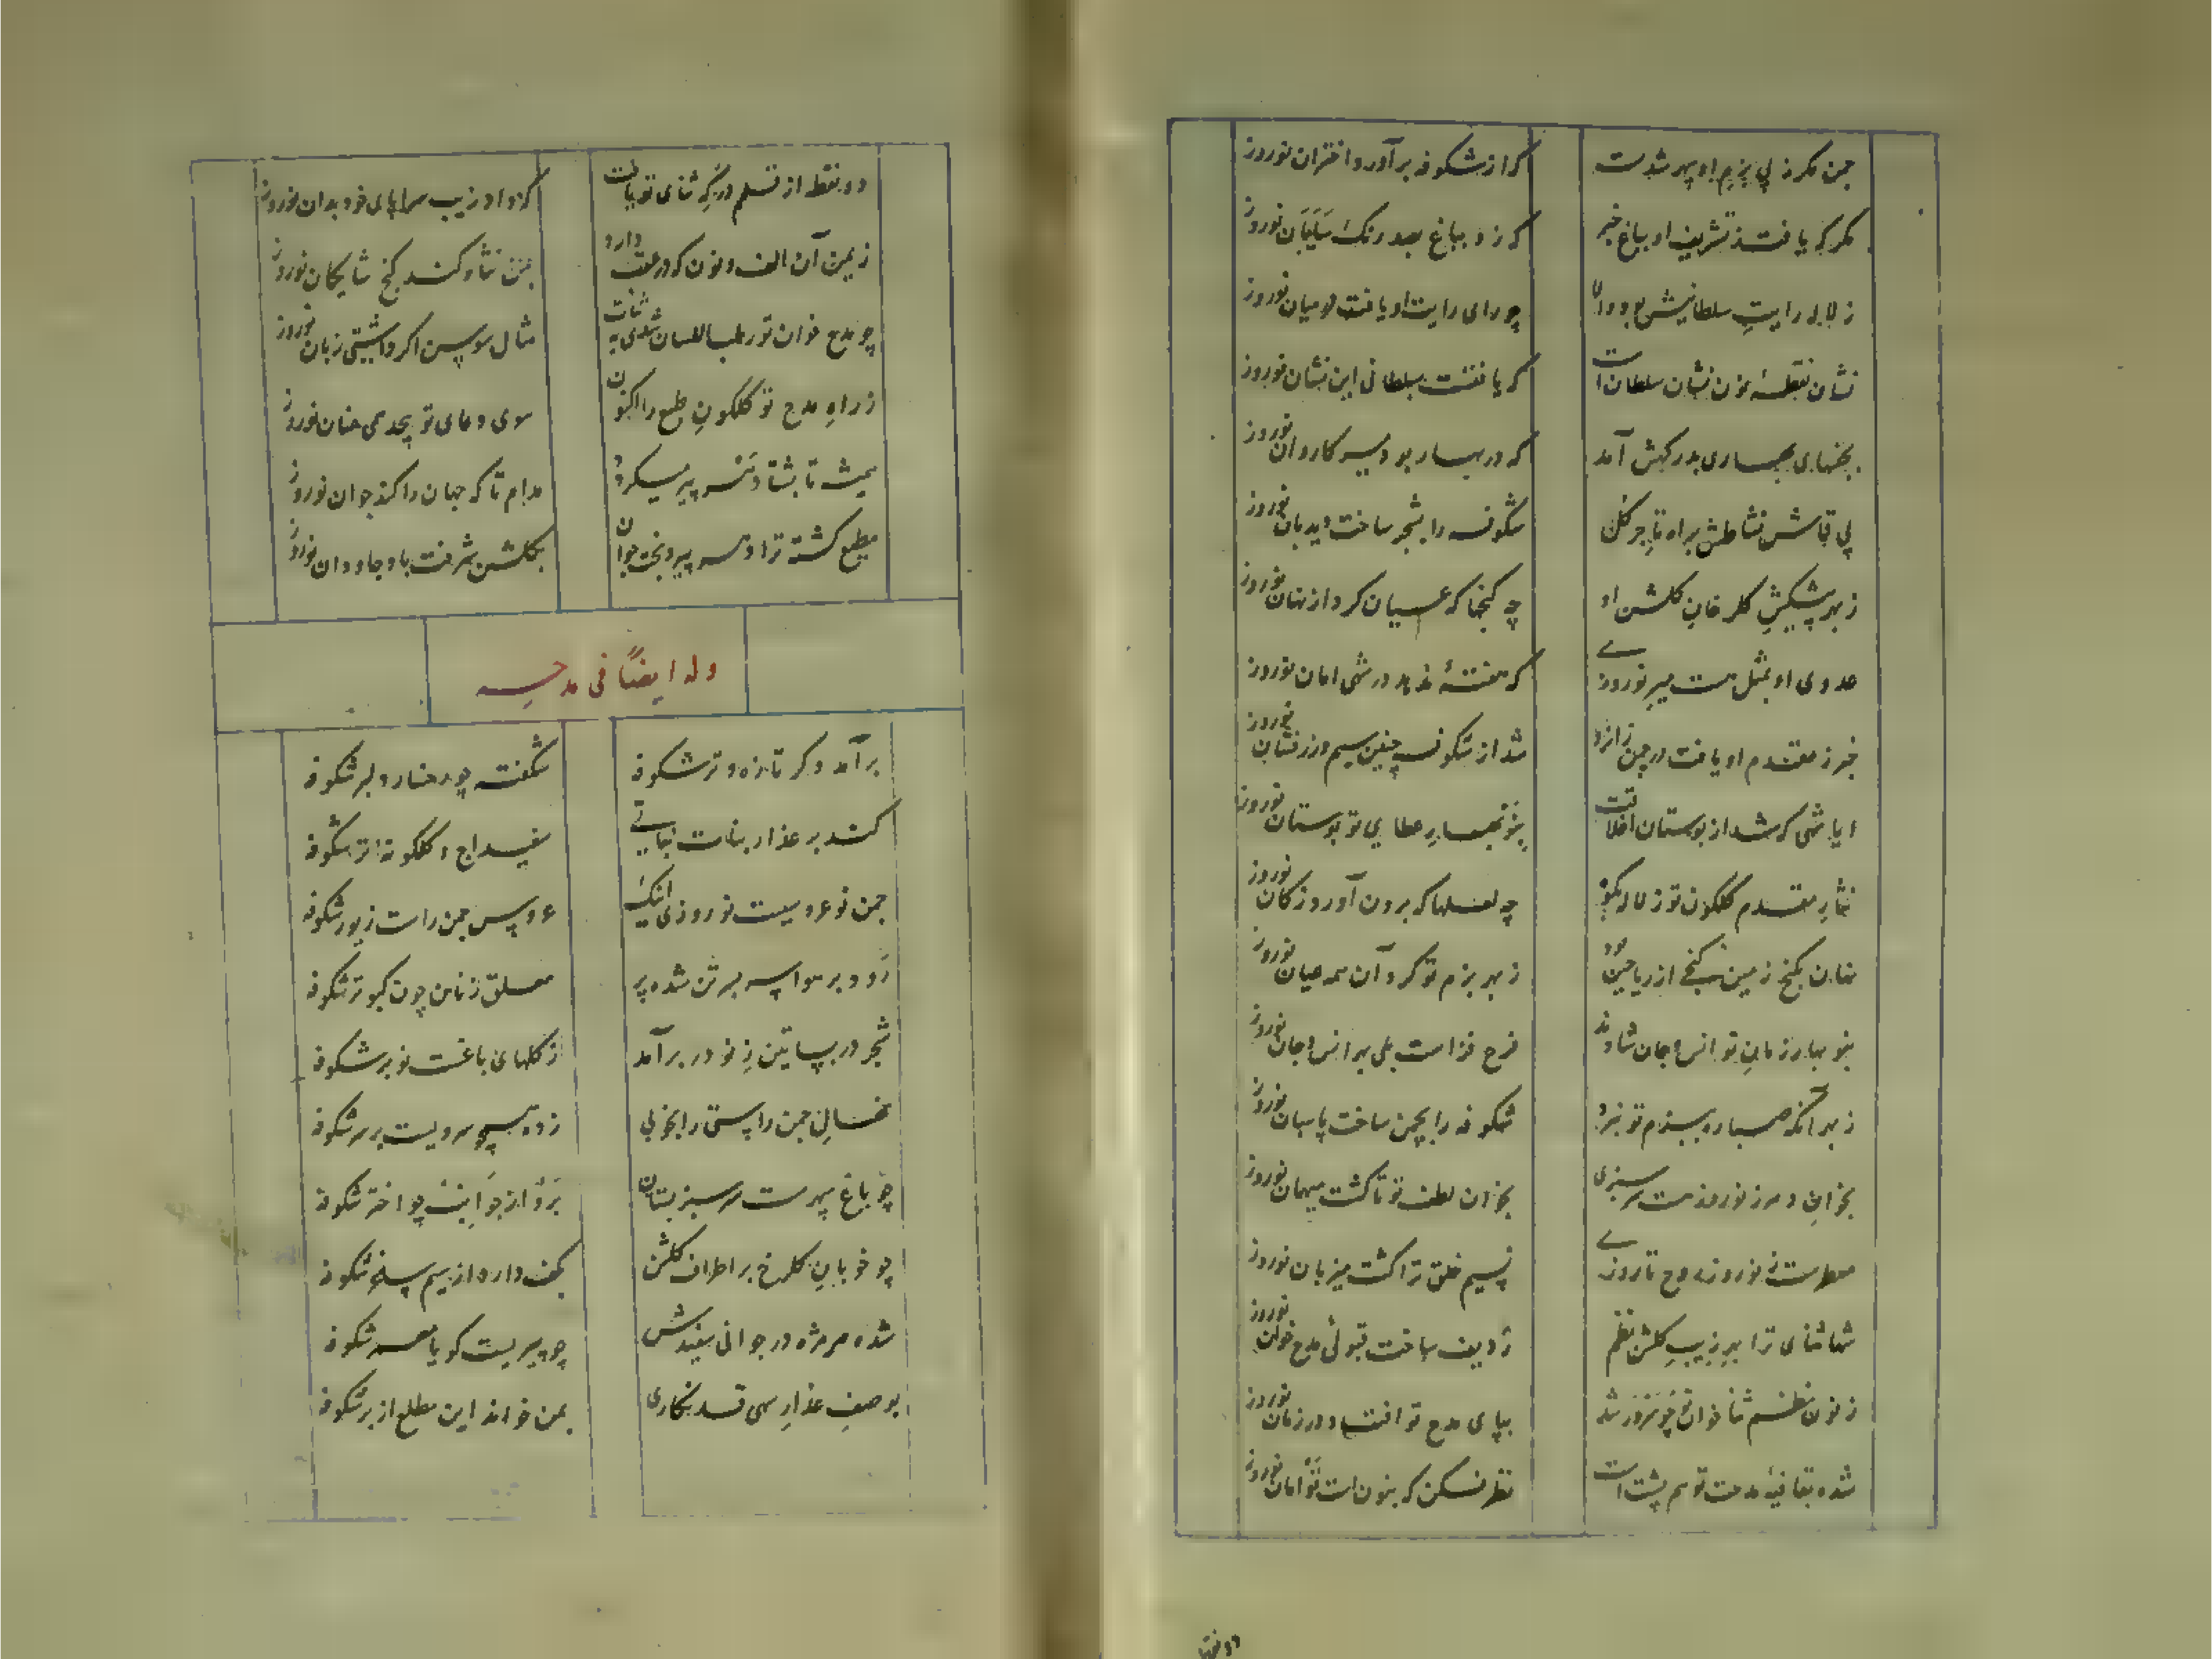 چمن مگر ز پی بزم او سپهر شدست
که از شکوفه برآورد اختران نوروز
مگر که یافت ز تشریف او بباغ خبر
که زد بباغ بصد رنگ سایبان نوروز
ز لاله رایت سلطانیش بود
چو رای رایت او یافت در میان نوروز
نشان نقطه نون نشان سلطان است
که یافتست بسلطانی این نشان نوروز
بدرگهش آمد
که در بهار بود میر کاروان نوروز
پی قماش نشاطش براه تاجر گل
شکوفه را بشجر ساخت دیدبان نوروز
ز بهر پیشکش گلرخان گلشن او
چه گنجها که عیان کرد از نهان نوروز
عدوی او بمثل هست میر نوروزی
که هفتهٔ ندهد در شهی امان نوروز
خبر ز مقدم او یافت در چمن زانرو
شد از شکوفه چنین سیم و زر فشان نوروز
ایا شهی که شد از بوستان اخلاقت
بنوبهار عطای تو بوستان نوروز
نثار مقدم گلگون تو ز لاله
چه لعلها که برون آورد ز کان نوروز
نهان بکنج زمین گنجی از ریاحین بود
ز بهر بزم تو کرد آن همه عیان نوروز
بنوبهار زمان تو انس و جان شادند
فرح فزاست بلی بهر انس و جان نوروز
ز بهر آنکه صبا ره ببزم تو نبرد
شکوفه را بچمن ساخت پاسبان نوروز
بخوان دهر ز نوروز هست سرسبزی
بخوان لطف تو تا گشت میهمان نوروز
معطرست ز نوروز روح تا روزی
نسیم خلق ترا گشت میزبان نوروز
شها ثنای ترا بهر زیب گلشن نظم
ردیف ساخت قبولی مدح خوان نوروز
ز نون نظم ثناخوان تو
بپای مدح تو افتاد در زمان نوروز
شده بقافیهٔ مدحت تو هم پشت است
نظر فکن که بنون است توامان نوروز
دو نقطه
دو نقطه از قلم در گه ثنای تو یافت
که داد زیب سراپای خود بدان نوروز
ز یمن آن الف و نون که در عقب دارد
بمن نثار کند گنج شایگان نوروز
چو مدح خوان تو رطب اللسان شدی به ثنات
مثال سوسن اگر داشتی زبان نوروز
ز راه مدح تو گلگون طبع را اکنون
سوی دعای تو پیچد همی عنان نوروز
همیشه تا بشتا دهر پیر میگردد
مدام تا که جهان را کند جوان نوروز
مطیع گشته ترا دهر پیر و بخت جوان
بگلشن شرفت باد جاودان نوروز
وله ایضاً فی مدحه
برآمد دگر تازه و تر شکوفه
شکفته چو رخسار دلبر شکوفه
کند بر عذار بنات نباتی
سفیداج و گلگونه تر شکوفه
چمن نوعروسیست نوروزی اینک
عروس چمن راست زیور شکوفه
رود بر هوا سر بسر تن شده پر
معلق زنان چون کبوتر شکوفه
شجر در بساتین ز نو در برآمد
ز گلهای باغست نوبر شکوفه
نهال چمن راستی را بخوبی
زده همچو سرویست بر سر شکوفه
چو باغ سپهرست سرسبز بستان
برو از جوانب چو اختر شکوفه
چو خوبان گلرخ بر اطراف گلشن
بکف دارد از سیم ساغر شکوفه
شده هر مژه در جوانی سفیدش
چو پیریست گویا معمر شکوفه
بوصف عذار سهی قد نگاری
بمن خواند این مطلع از بر شکوفه